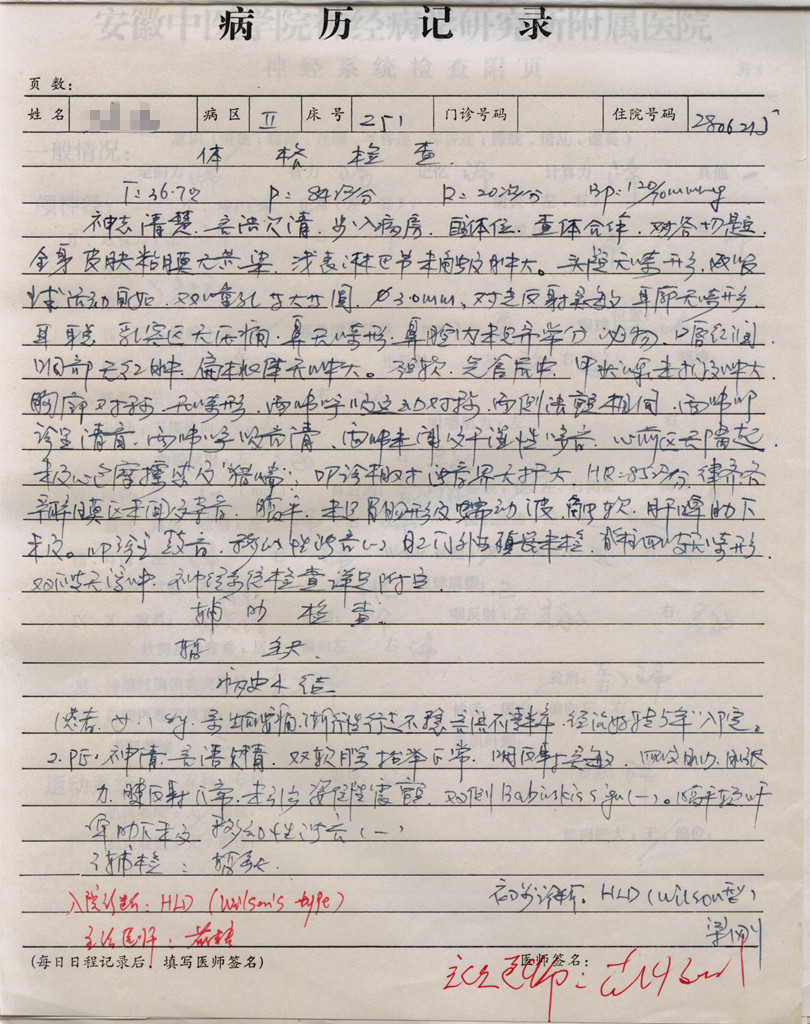 病历记录
页数:
姓名 病区 II 床号 251 门诊号码 住院号码
体格检查
T=36.7℃ P=84次/分 R=20次/分 Bp=120/80mmHg
神志清楚, 言语欠清, 步入病房, 自主体位, 查体合作, 对答切题,
全身皮肤粘膜无黄染, 浅表淋巴节未触及肿大。头颅无畸形, 眼
球活动自如, 双瞳孔等大等圆, 3.0mm, 对光反射灵敏, 耳廓无畸形,
乳突区无压痛, 鼻无畸形, 鼻腔内未见异常分泌物, 口唇红润,
咽部无红肿, 扁桃体无肿大。颈软, 气管居中, 甲状腺未扪及肿大,
胸廓对称, 无畸形, 两肺呼吸运动对称, 两侧语颤相同, 两肺叩
诊呈清音, 两肺呼吸音清, 两肺未闻及干湿性啰音, 心前区无隆起,
未及心包摩擦感及"猫喘", 叩诊相对浊音界无扩大, HR=85次/分, 律齐, 各
瓣膜区未闻及杂音, 腹平, 未见胃肠形及蠕动波, 触软, 肝脾肋下
未及。叩诊鼓音, 移动性浊音(-), 肛门外生殖器未检, 脊柱四肢无畸形,
双下肢无浮肿, 神经系统检查详见附页
辅助检查
暂缺
病史小结
1.患者, 女,
2.PE: 神清, 言语欠清, 双软腭抬举正常, 咽反射灵敏, 四肢肌力、肌张
力、腱反射正常, 未引出姿位性震颤, 双侧Babinski's sign(-)。腹平软, 肝
脾肋下未及, 移动性浊音(-)
3.辅检: 暂缺.
初步诊断: HLD(Wilson型)
入院诊断: HLD (Wilson's type)
主治医师:
(每日日程记录后, 填写医师签名) 医师签名:
主任医师: